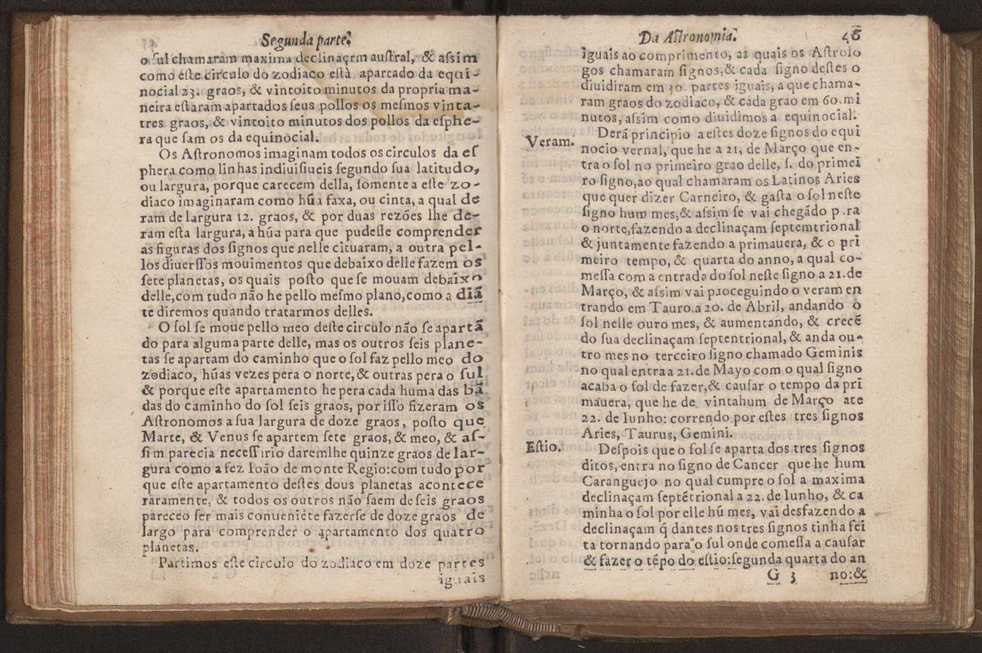 Segunda parte.
o sul chamaram maxima declinaçam austral, & assim
como este circulo do zodiaco està apartado da equi-
nocial 23. graos, & vintoito minutos da propria ma-
neira estaram apartados seus pollos os mesmos vinta-
tres graos, & vintoito minutos dos pollos da esphe-
ra que sam os da equinocial.
Os Astronomos imaginam todos os circulos da es
phera como linhas indiuisiueis segundo sua latitudo,
ou largura, porque carecem della, somente a este zo-
diaco imaginaram como hũa faxa, ou cinta, a qual de
ram de largura 12. graos, & por duas rezões lhe de-
ram esta largura, a hũa para que pudesse comprender
as figuras dos signos que nelle cituaram, a outra pel-
los diuerssos mouimentos que debaixo delle fazem os
sete planetas, os quais posto que se mouam debaixo
delle, com tudo não he pello mesmo plano, como a diã
te diremos quando tratarmos delles.
O sol se moue pello meo deste circulo não se apartã
do para alguma parte delle, mas os outros seis plane-
tas se apartam do caminho que o sol faz pello meo do
zodiaco, hũas vezes pera o norte, & outras pera o sul
& porque este apartamento he pera cada huma das bã
das do caminho do sol seis graos, por isso fizeram os
Astronomos a sua largura de doze graos, posto que
Marte, & Venus se apartem sete graos, & meo, & as-
sim parecia necessrio daremlhe quinze graos de lar-
gura como a fez Ioão de monte Regio: com tudo por
que este apartamento destes dous planetas acontece
raramente, & todos os outros não saem de seis graos
pareceo ser mais conueniẽte fazerse de doze graos de
largo para comprender o apartamento dos quatro
planetas.
Partimos este circulo do zodiaco em doze partes
iguais
Da Astronomia.
46
iguais ao comprimento, as quais os Astrolo
gos chamaram signos, & cada signo destes o
diuidiram em 30. partes iguais, a que chama-
ram graos do zodiaco, & cada grao em 60. mi
nutos, assim como diuidimos a equinocial.
Veram.
Derã principio a estes doze signos do equi
nocio vernal, que he a 21, de Março que en-
tra o sol no primeiro grao delle, s. do primei
ro signo, ao qual chamaram os Latinos Aries
que quer dizer Carneiro, & gasta o sol neste
signo hum mes, & assim se vai chegãdo p.ra
o norte, fazendo a declinaçam septemtrional
& juntamente fazendo a primauera, & o pri
meiro tempo, & quarta do anno, a qual co-
messa com a entrada do sol neste signo a 21. de
Março, & assim vai proceguindo o veram en
trando em Tauro a 20. de Abril, andando o
sol nelle outro mes, & aumentando, & crecẽ
do sua declinaçam septentrional, & anda ou-
tro mes no terceiro signo chamado Geminis
no qual entra a 21. de Mayo com o qual signo
acaba o sol de fazer, & causar o tempo da pri
mauera, que he de vintahum de Março ate
22. de Iunho: correndo por estes tres signos
Aries, Taurus, Gemini.
Estio.
Despois que o sol se aparta dos tres signos
ditos, entra no signo de Cancer que he hum
Caranguejo no qual cumpre o sol a maxima
declinaçam septẽtrional a 22. de Iunho, & ca
minha o sol por elle hũ mes, vai desfazendo a
declinaçam q̃ dantes nos tres signos tinha fei
ta tornando para o sul onde comessa a causar
& fazer o tẽpo do estio: segunda quarta do an
G 3 no: &